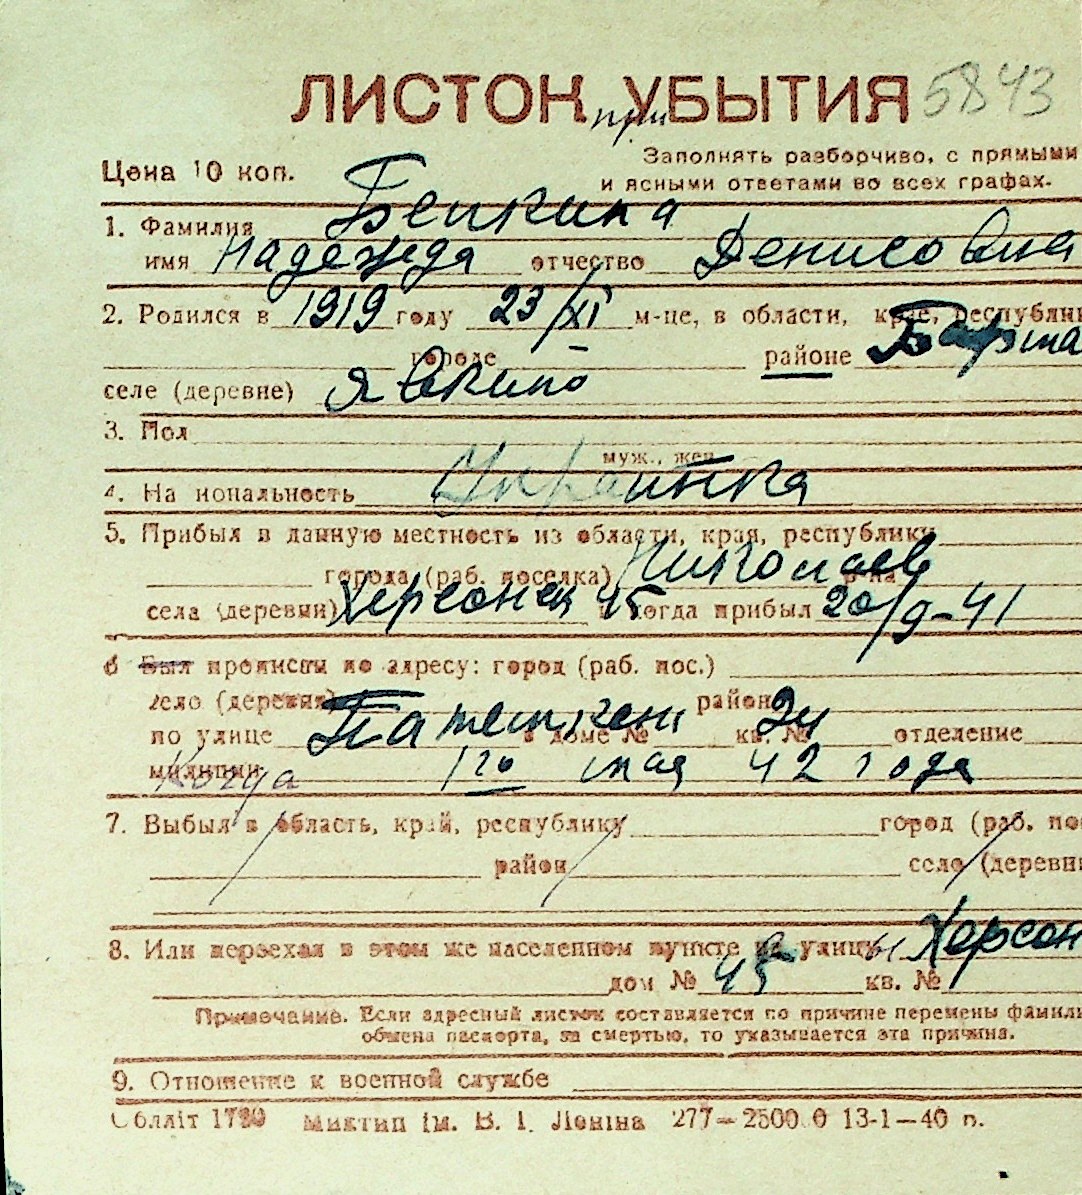 ЛИСТОК УБЫТИЯ 5843
при
Цена 10 коп.
Заполнять разборчиво, с прямыми
и ясными ответами во всех графах.
1. Фамилия
имя Надежда отчество Денисовна
2. Родился в 1919 году 23/XI м-це, в области, крае, республик
городе районе
селе (деревне) Явкино
3. Пол
муж., жен.
4. На иональность Украинка
5. Прибыл в данную местность из области, края, республики
города (раб. поселка) Николаев
села (деревни) 45 когда прибыл 20/9-41
6 Был прописан по адресу: город (раб. пос.)
село (деревня) район
по улице в доме № кв. № отделение
милиции Когда 1го мая 42 года
7. Выбыл в область, край, республику город (раб. по
район село (деревн
8. Или переехал в этом же населенном пункте на улицу Херсон
дом № 45 кв. №
Примечание. Если адресный листок составляется по причине перемены фамили
обмена паспорта, за смертью, то указывается эта причина.
9. Отношение к военной службе
Облліт 1780 Миктип ім. В. І. Леніна 277—2500 0 13-1—40 р.